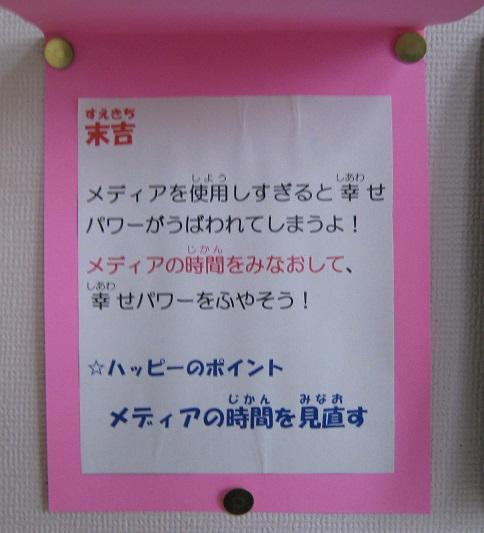 すえきち
末吉
しよう しあわ
メディアを使用しすぎると幸せ
パワーがうばわれてしまうよ！
じかん
メディアの時間をみなおして、
しあわ
幸せパワーをふやそう！
☆ハッピーのポイント
じかん みなお
メディアの時間を見直す